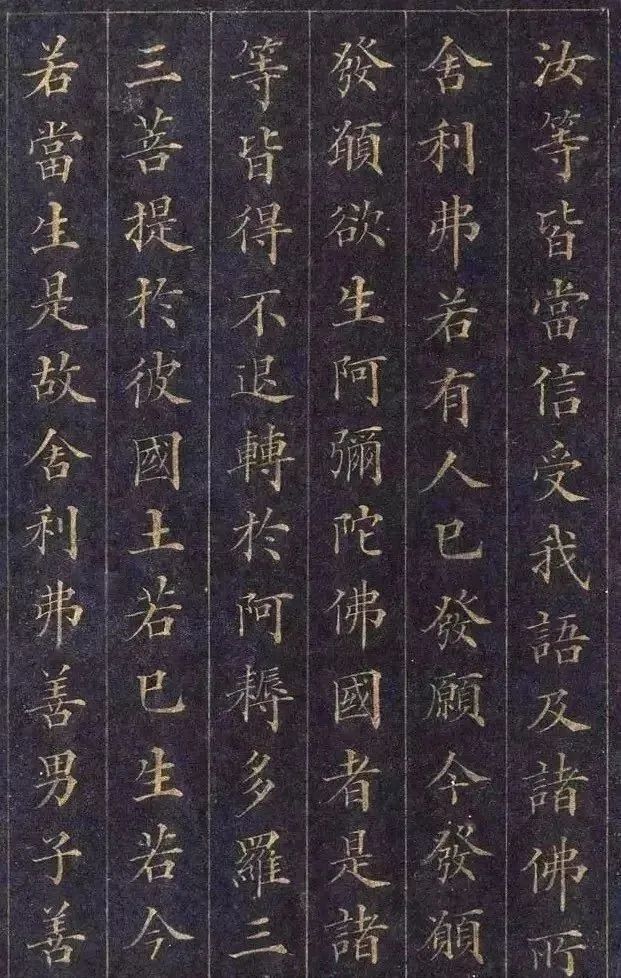 汝等皆當信受我語及諸佛所
舍利弗若有人已發願今發願
發願欲生阿彌陀佛國者是諸
等皆得不退轉於阿耨多羅三
三菩提於彼國土若已生若今
若當生是故舍利弗善男子善